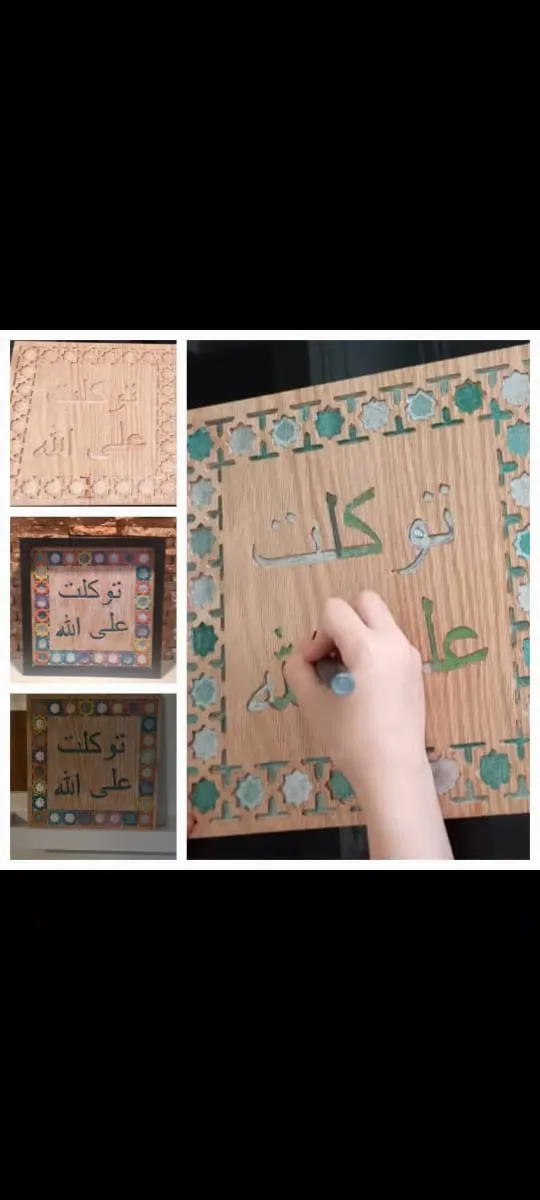 توكلت
على الله
توكلت
على الله
توكلت
على الله
توكلت
على الله